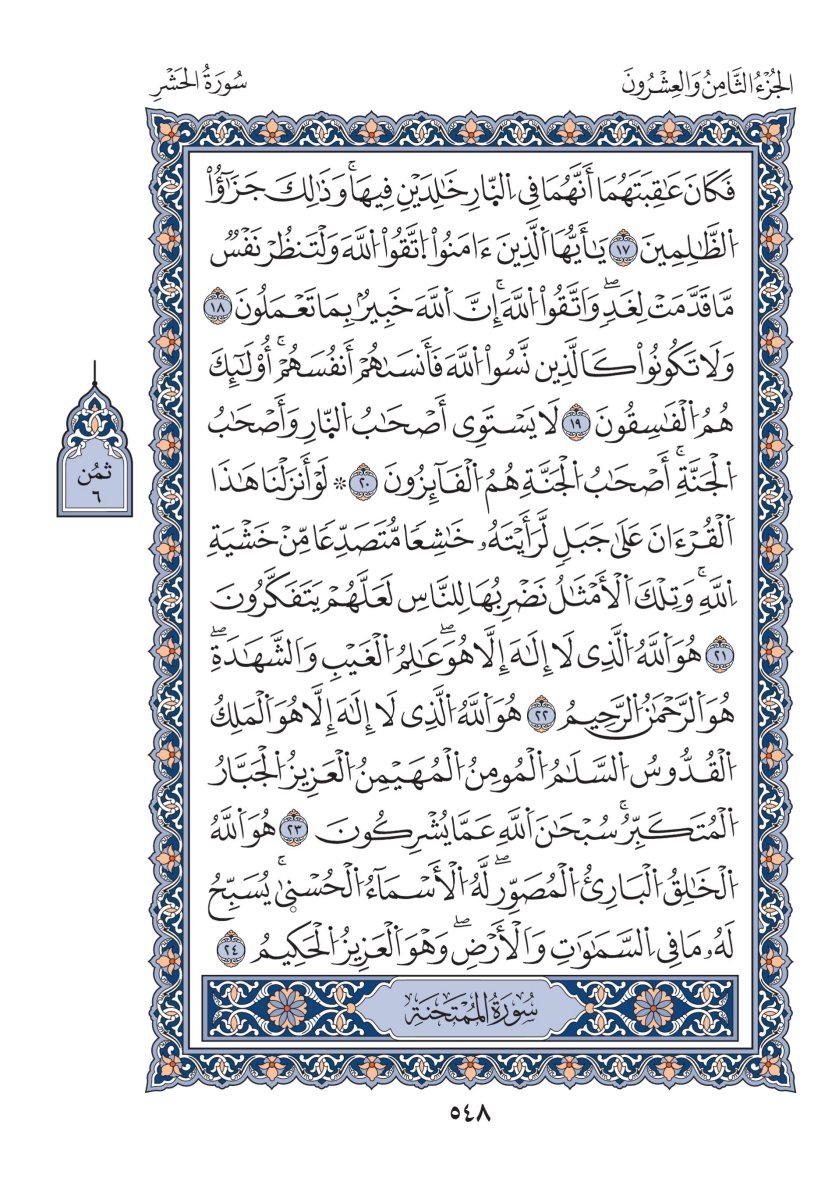 الجُزْءُ الثَّامِنُ وَالْعِشْرُونَ
سُورَةُ الحَشْرِ
فَكَانَ عَٰقِبَتَهُمَا أَنَّهُمَا فِي اِ۬لنّ۪ارِ خَٰلِدَيْنِ فِيهَاۚ وَذَٰلِكَ جَزَٰٓؤُاْ
اُ۬لظَّٰلِمِينَ ١٧ يَٰأَيُّهَا اَ۬لَّذِينَ ءَامَنُواْ اُ۪تَّقُواْ اُ۬للَّهَ وَلْتَنظُرْ نَفْسٌ
مَّا قَدَّمَتْ لِغَدٍۖ وَاَتَّقُواْ اُ۬للَّهَۚ إِنَّ اَ۬للَّهَ خَبِيرُۢ بِمَا تَعْمَلُونَ ١٨
وَلَا تَكُونُواْ كَاَلَّذِينَ نَسُواْ اُ۬للَّهَ فَأَنسَىٰهُمْ أَنفُسَهُمْۚ أُوْلَٰٓئِكَ
هُمُ اُ۬لْفَٰسِقُونَ ١٩ لَا يَسْتَوِي أَصْحَٰبُ اُ۬لنّ۪ارِ وَأَصْحَٰبُ
اُ۬لْجَنَّةِۚ أَصْحَٰبُ اُ۬لْجَنَّةِ هُمُ اُ۬لْفَآئِزُونَ ٢٠ ۞ لَوْ أَنزَلْنَا هَٰذَا
اَ۬لْقُرْءَانَ عَلَىٰ جَبَلٍ لَّرَأَيْتَهُۥ خَٰشِعًا مُّتَصَدِّعًا مِّنْ خَشْيَةِ
اِ۬للَّهِۚ وَتِلْكَ اَ۬لْأَمْثَٰلُ نَضْرِبُهَا لِلنَّاسِ لَعَلَّهُمْ يَتَفَكَّرُونَ
٢١ هُوَ اَ۬للَّهُ اُ۬لَّذِي لَا إِلَٰهَ إِلَّا هُوَۖ عَٰلِمُ اُ۬لْغَيْبِ وَاَلشَّهَٰدَةِۖ
هُوَ اَ۬لرَّحْمَٰنُ اُ۬لرَّحِيمُ ٢٢ هُوَ اَ۬للَّهُ اُ۬لَّذِي لَا إِلَٰهَ إِلَّا هُوَ اَ۬لْمَلِكُ
اُ۬لْقُدُّوسُ اُ۬لسَّلَٰمُ اُ۬لْمُومِنُ اُ۬لْمُهَيْمِنُ اُ۬لْعَزِيزُ اُ۬لْجَبَّارُ
اُ۬لْمُتَكَبِّرُۚ سُبْحَٰنَ اَ۬للَّهِ عَمَّا يُشْرِكُونَ ٢٣ هُوَ اَ۬للَّهُ
اُ۬لْخَٰلِقُ اُ۬لْبَارِئُ اُ۬لْمُصَوِّرۖ لَّهُ اُ۬لْأَسْمَآءُ اُ۬لْحُسْنۭيٰۚ يُسَبِّحُ
لَهُۥ مَا فِي اِ۬لسَّمَٰوَٰتِ وَاَلْأَرْضِۖ وَهُوَ اَ۬لْعَزِيزُ اُ۬لْحَكِيمُ ٢٤
ثُمُن
٦
سُورَةُ المُمْتَحَنَةِ
٥٤٨